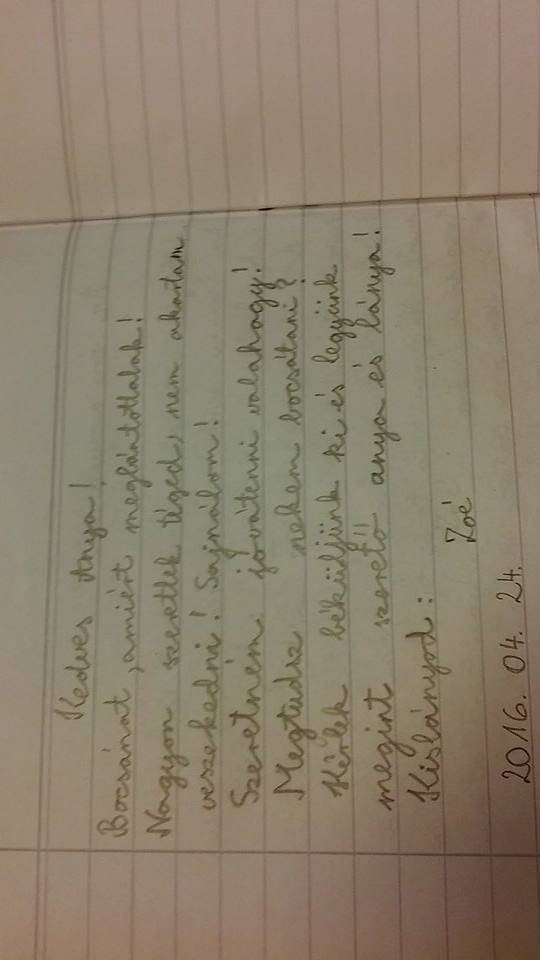 Kedves Anya!
Bocsánat, amiért megbántottalak!
Nagyon szeretlek téged, nem akartam
veszekedni! Sajnálom!
Szeretném jóvátenni valahogy!
Megtudsz nekem bocsátani?
Kérlek béküljünk ki és legyünk
megint szerető anya és lánya!
Kislányod:
Zoé
2016. 04. 24.